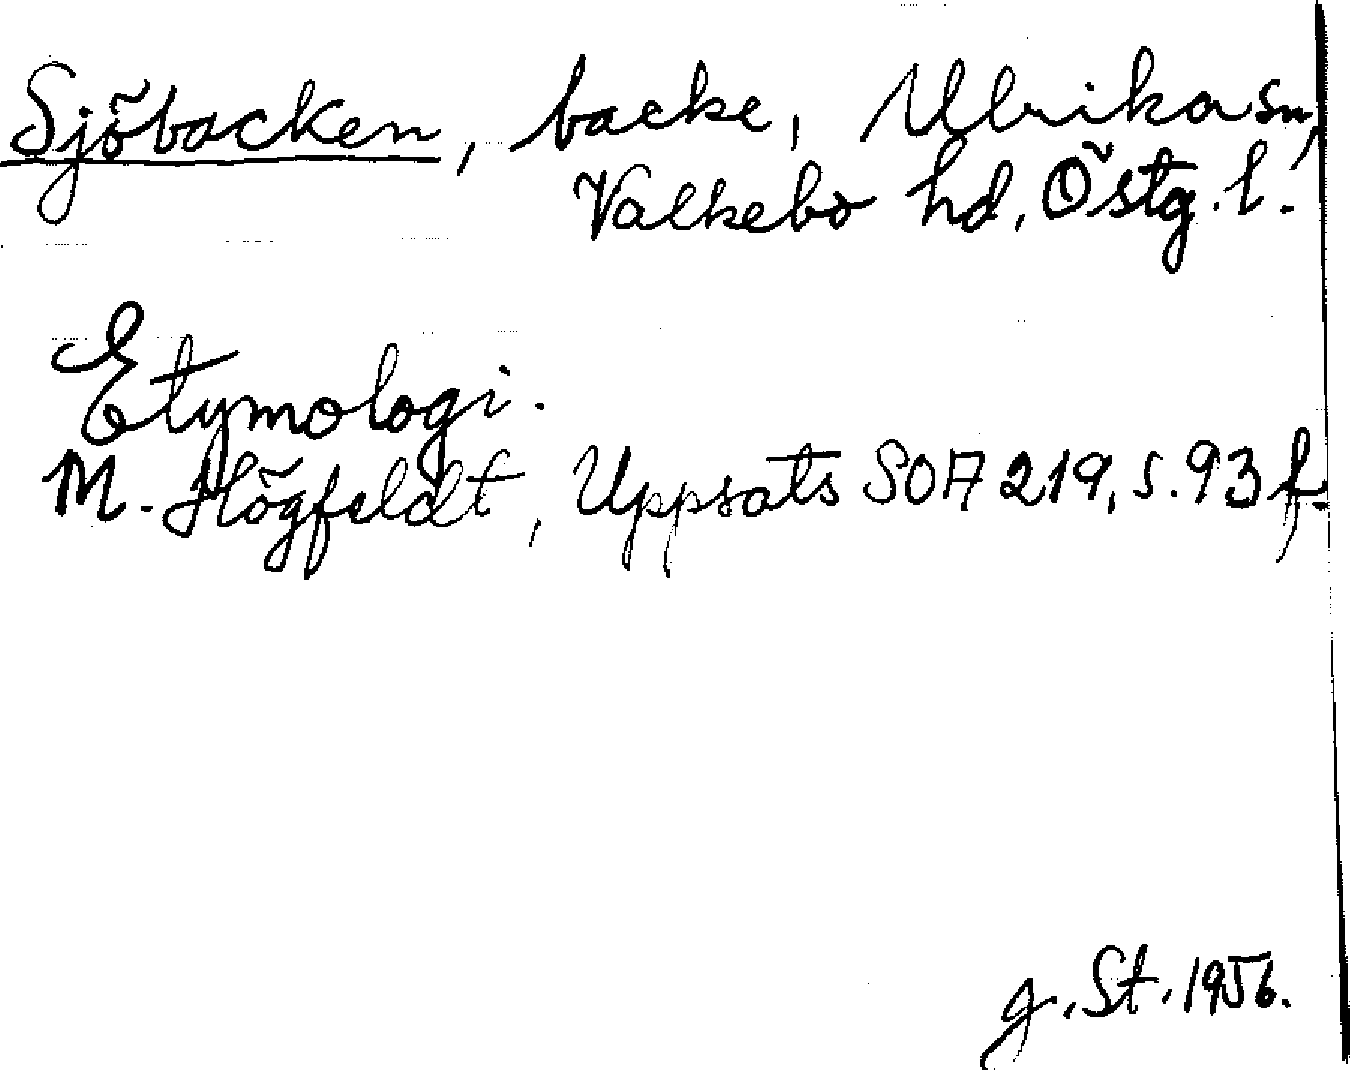 Sjöbacken, backe, Ulrika sn,
Valkebo hd, Östg. l.
Etymologi.
M. Högfeldt, Uppsats SOA 219, s. 93 f.
g. St. 1956.